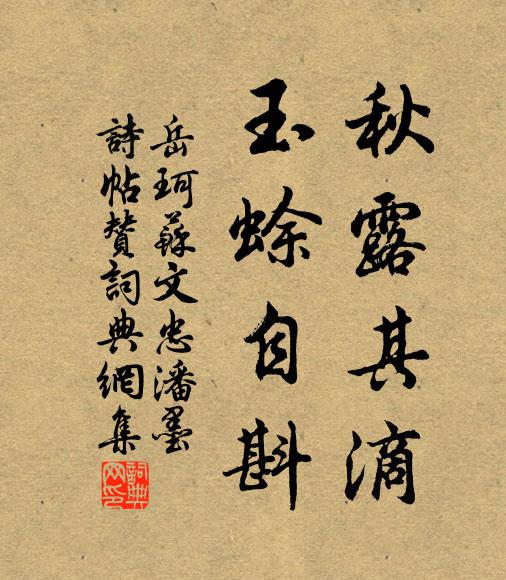 秋露其滴
玉蜍自斟
岳珂蘇文忠潘墨
詩帖贊詞典網集
詞典网印